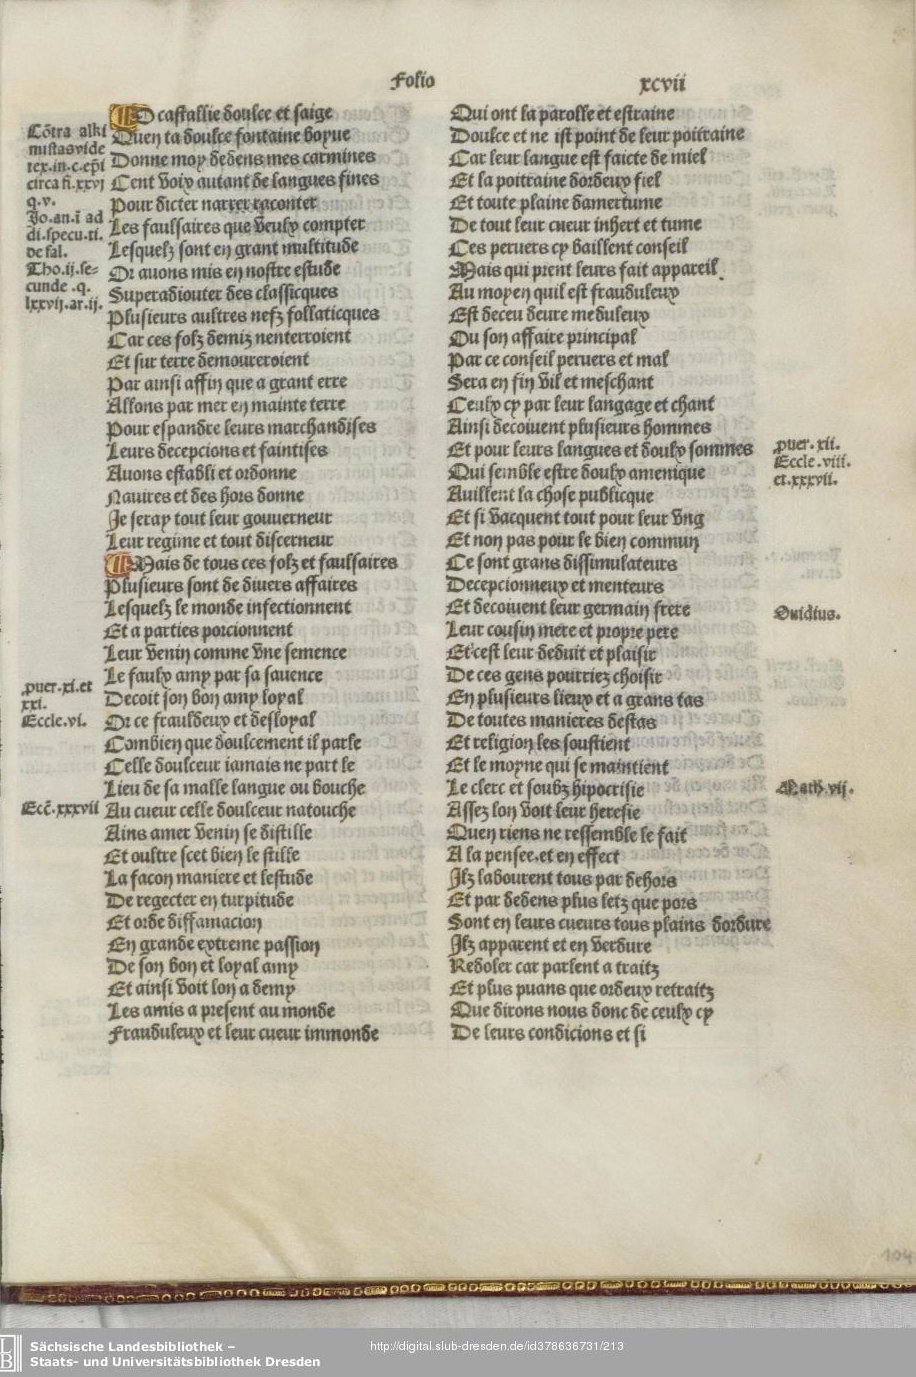 Folio xcvii
O castallie doulce et saige
Quen ta doulce fontaine boyue
Donne moy dedens mes carmines
Cent voix autant de langues fines
Pour dicter narrer raconter
Les faulsaires que veulx compter
Lesquelz sont en grant multitude
Or auons mis en nostre estude
Superadiouter des classicques
Plusieurs aultres nefz follaticques
Car ces folz demiz nenterroient
Et sur terre demoureroient
Par ainsi affin que a grant erre
Allons par mer en mainte terre
Pour espandre leurs marchandises
Leurs decepcions et faintises
Auons establi et ordonne
Nauires et des hors donne
Je seray tout leur gouuerneur
Leur regime et tout discerneur
Mais de tous ces folz et faulsaires
Plusieurs sont de diuers affaires
Lesquelz le monde infectionnent
Et a parties porcionnent
Leur venin comme vne semence
Le faulx amy par sa sauence
Decoit son bon amy loyal
Or ce frauldeux et desloyal
Combien que doulcement il parle
Celle doulceur iamais ne part le
Lieu de sa malle langue ou bouche
Au cueur celle doulceur natouche
Ains amer venin se distille
Et oultre scet bien le stille
La facon maniere et lestude
De regecter en turpitude
Et orde diffamacion
En grande extreme passion
De son bon et loyal amy
Et ainsi voit lon a demy
Les amis a present au monde
Frauduleux et leur cueur immonde
Cōtra alki
mistas vide
tex.in.c.epi
circa fi.xxvj
q.v.
Jo.an.ī ad
di.specu.ti.
de fal.
Tho.ij.se=
cunde .q.
lxxvij.ar.ij.
prouer.xi.et
xxi.
Eccle.vi.
Ecc̄.xxxvii
Qui ont la parolle et estraine
Doulce et ne ist point de leur poitraine
Car leur langue est faicte de miel
Et la poitraine dordeux fiel
Et toute plaine damertume
De tout leur cueur inhert et tume
Ces peruers cy baillent conseil
Mais qui prent leurs fait appareil
Au moyen quil est frauduleux
Est deceu deure meduleux
Ou son affaire principal
Par ce conseil peruers et mal
Sera en fin vil et meschant
Ceulx cy par leur langage et chant
Ainsi decoiuent plusieurs hommes
Et pour leurs langues et doulx sommes
Qui semble estre doulx amenique
Auillent la chose publicque
Et si vacquent tout pour leur vng
Et non pas pour le bien commun
Ce sont grans dissimulateurs
Decepcionneux et menteurs
Et decoiuent leur germain frere
Leur cousin mere et propre pere
Et cest leur deduit et plaisir
De ces gens pourriez choisir
En plusieurs lieux et a grans tas
De toutes manieres destas
Et religion les soustient
Et le moyne qui se maintient
Le clerc et soubz hipocrisie
Assez lon voit leur heresie
Quen riens ne ressemble le fait
A la pensee.et en effect
Jlz labourent tous par dehors
Et par dedens plus letz que pors
Sont en leurs cueurs tous plains dordure
Jlz apparent et en verdure
Redoler car parlent a traitz
Et plus puans que ordeux retraitz
Que dirons nous donc de ceulx cy
De leurs condicions et si
prouer.xii.
Eccle.viii.
et.xxxvii.
Ouidius.
Math.vij.
104
Sächsische Landesbibliothek –
Staats- und Universitätsbibliothek Dresden
http://digital.slub-dresden.de/id378636731/213